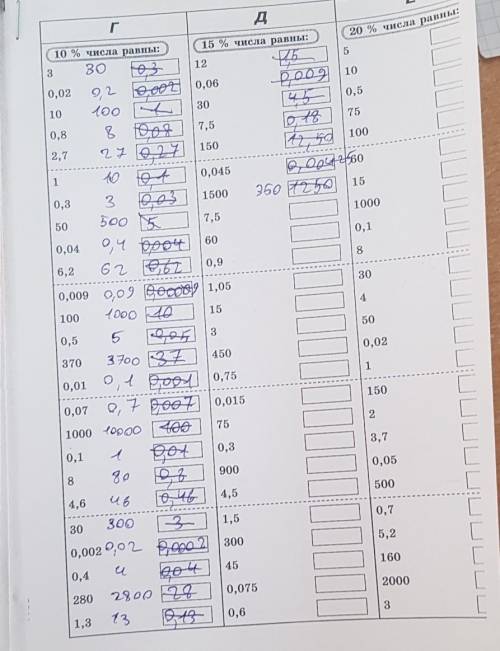 Г
10 % числа равны:
3 30 0,3
0,02 0,2 0,002
10 100 1
0,8 8 0,08
2,7 27 0,27
1 10 0,1
0,3 3 0,03
50 500 5
0,04 0,4 0,004
6,2 62 0,62
0,009 0,09
100 1000 10
0,5 5 0,05
370 3700 37
0,01 0,1 0,001
0,07 0,7 0,007
1000 10000 100
0,1 1 0,01
8 80 0,8
4,6 46 0,46
30 300 3
0,002 0,02 0,0002
0,4 4 0,04
280 2800 28
1,3 13 0,13
Д
15 % числа равны:
12 1,5
0,06 0,009
30 4,5
7,5 0,18
150 12,50
0,045
1500 350 1250
7,5
60
0,9
1,05
15
3
450
0,75
0,015
75
0,3
900
4,5
1,5
300
45
0,075
0,6
20 % числа равны:
5
10
0,5
75
100
60
15
1000
0,1
8
30
4
50
0,02
1
150
2
3,7
0,05
500
0,7
5,2
160
2000
3